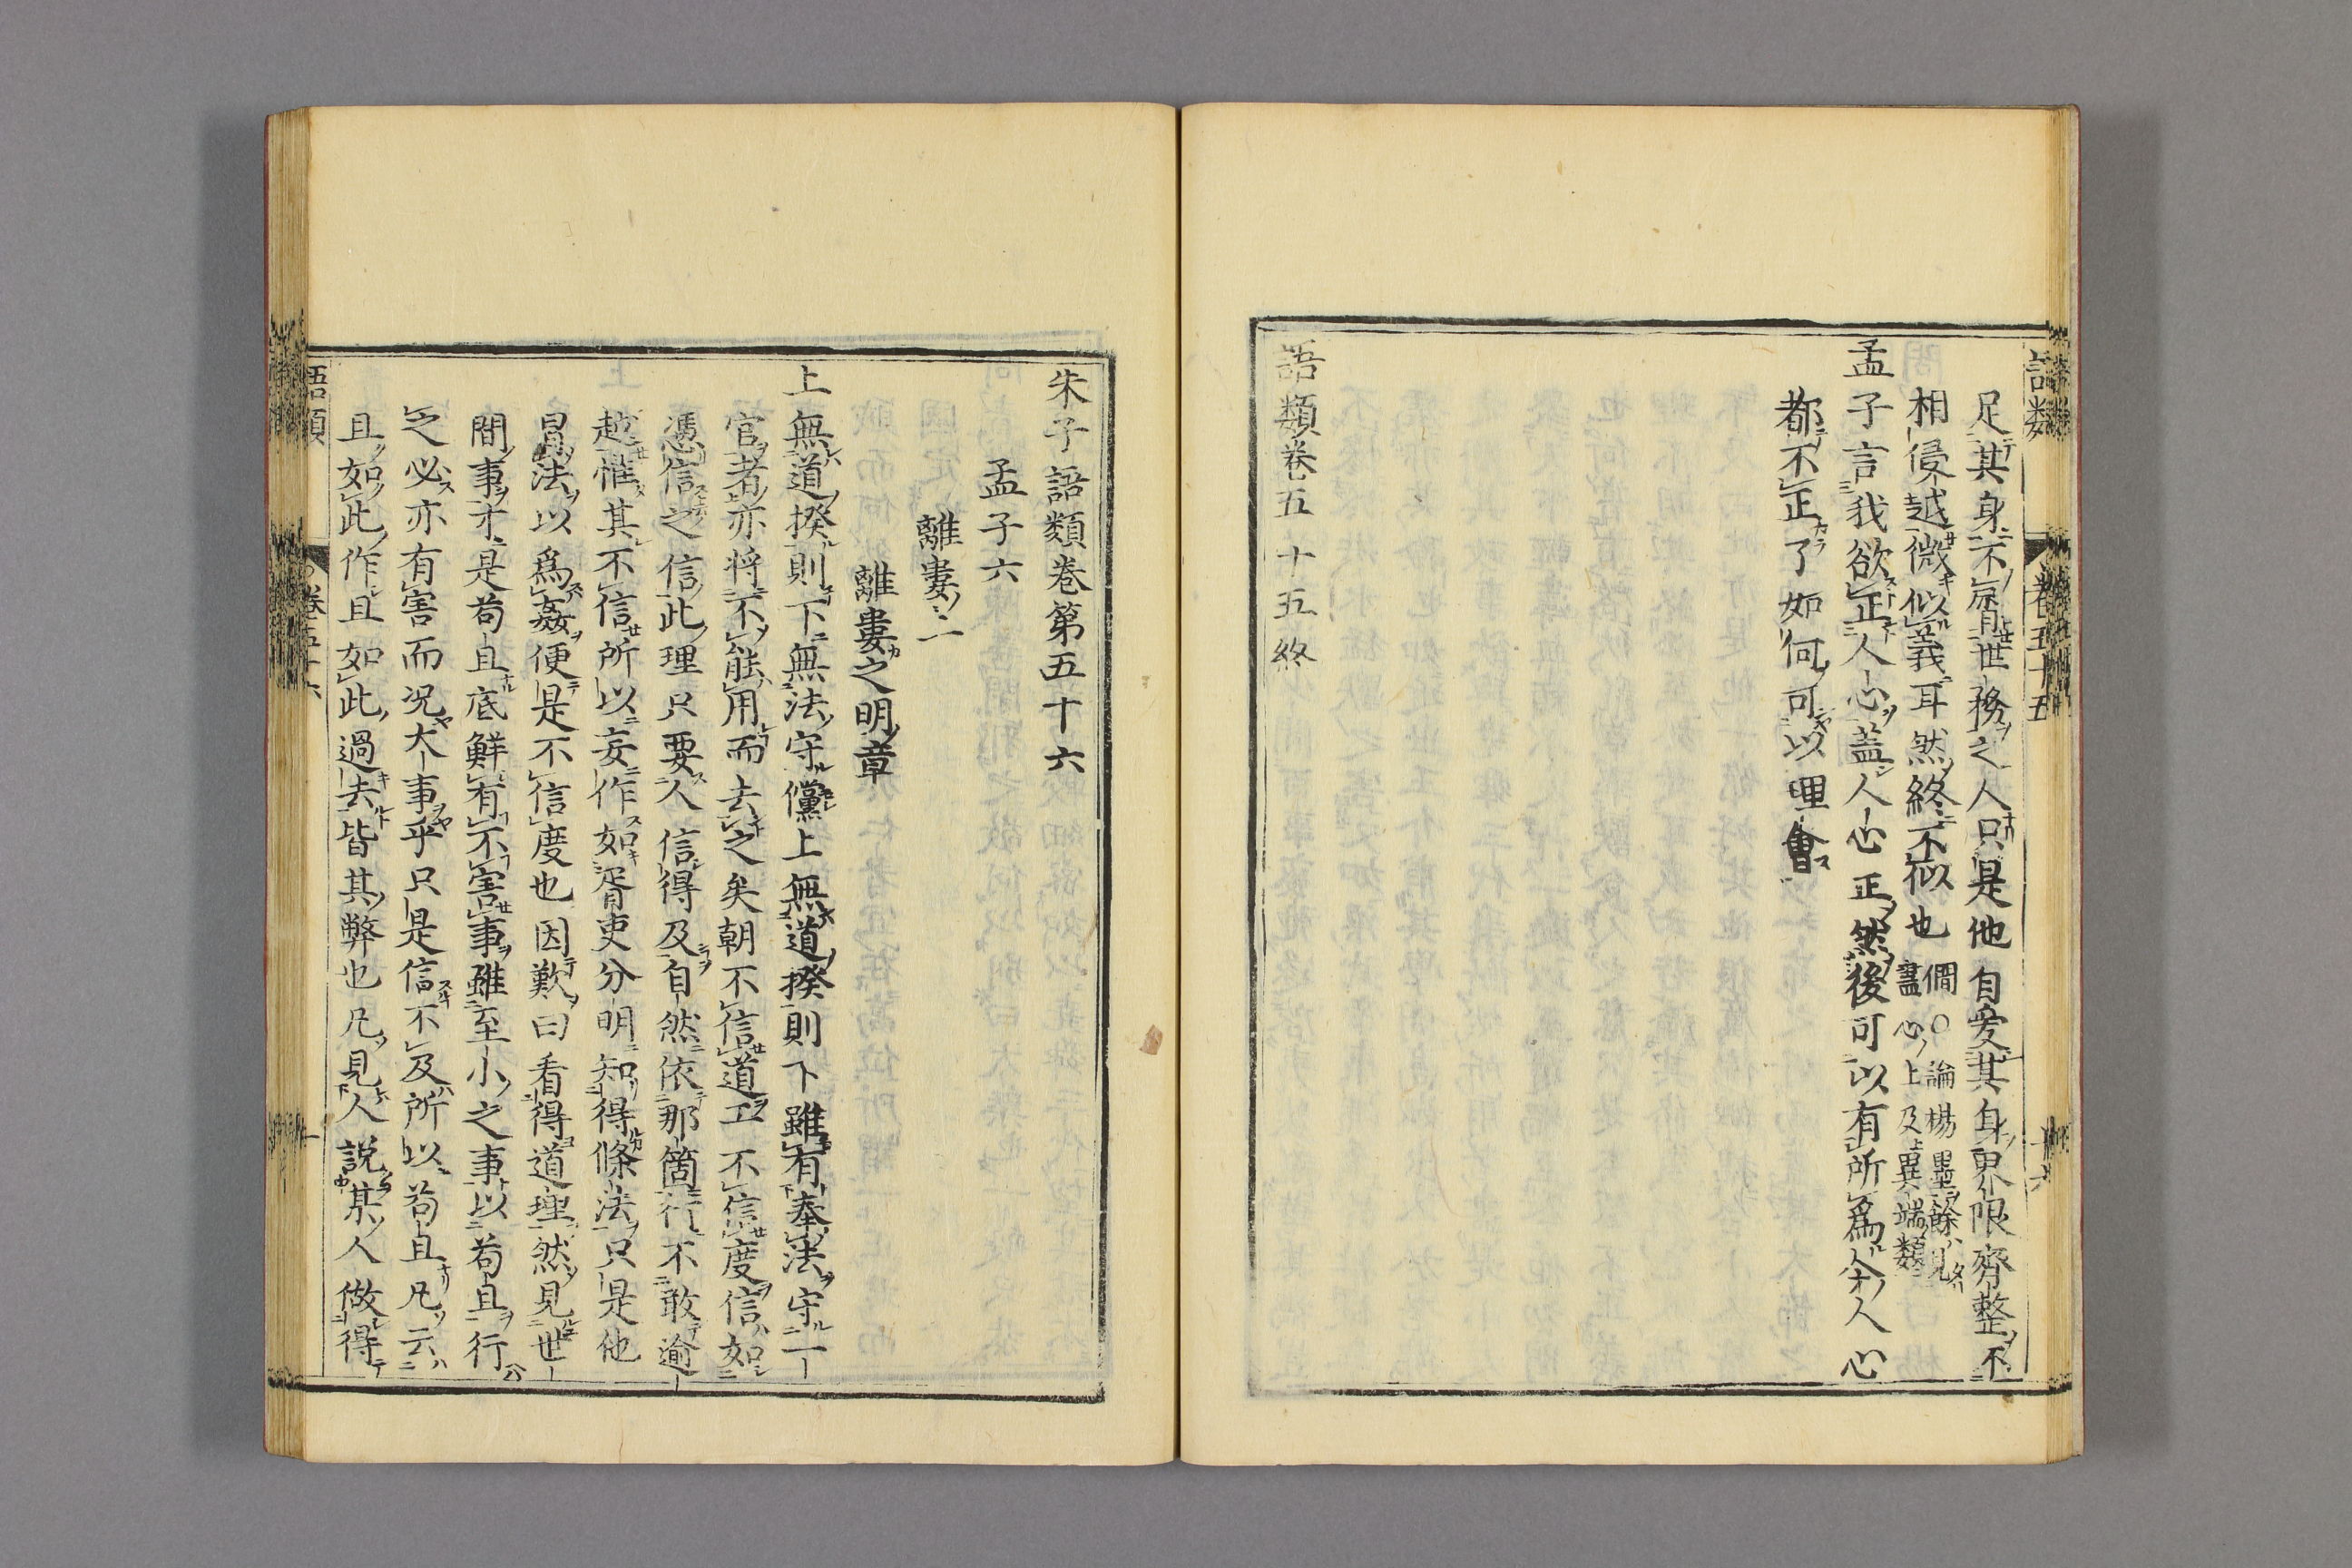 足其身不屑世務之人只是他自愛其身界限齊整不
相侵越微似義耳然終不似也
僩○論楊墨餘見
盡心上及異端類
孟子言我欲正人心蓋人心正然後可以有所爲今人心
都不正了如何可以理會
語類卷五十五終
朱子語類卷第五十六
孟子六
離婁二
離婁之明章
上無道揆則下無法守儻上無道揆則下雖有奉法守一
官者亦将不能用而去之矣朝不信道工不信度信如
憑信之信此理只要人信得及自然依那箇行不敢逾
越惟其不信所以妄作如胥吏分明知得條法只是他
冒法以爲姦便是不信度也因歎曰看得道理然見世
間事才是苟且底鮮有不害事雖至小之事以苟且行
之必亦有害而况大事乎只是信不及所以苟且凡云
且如此作且如此過去皆其弊也凡見人説某人做得
語類
卷五十六
一